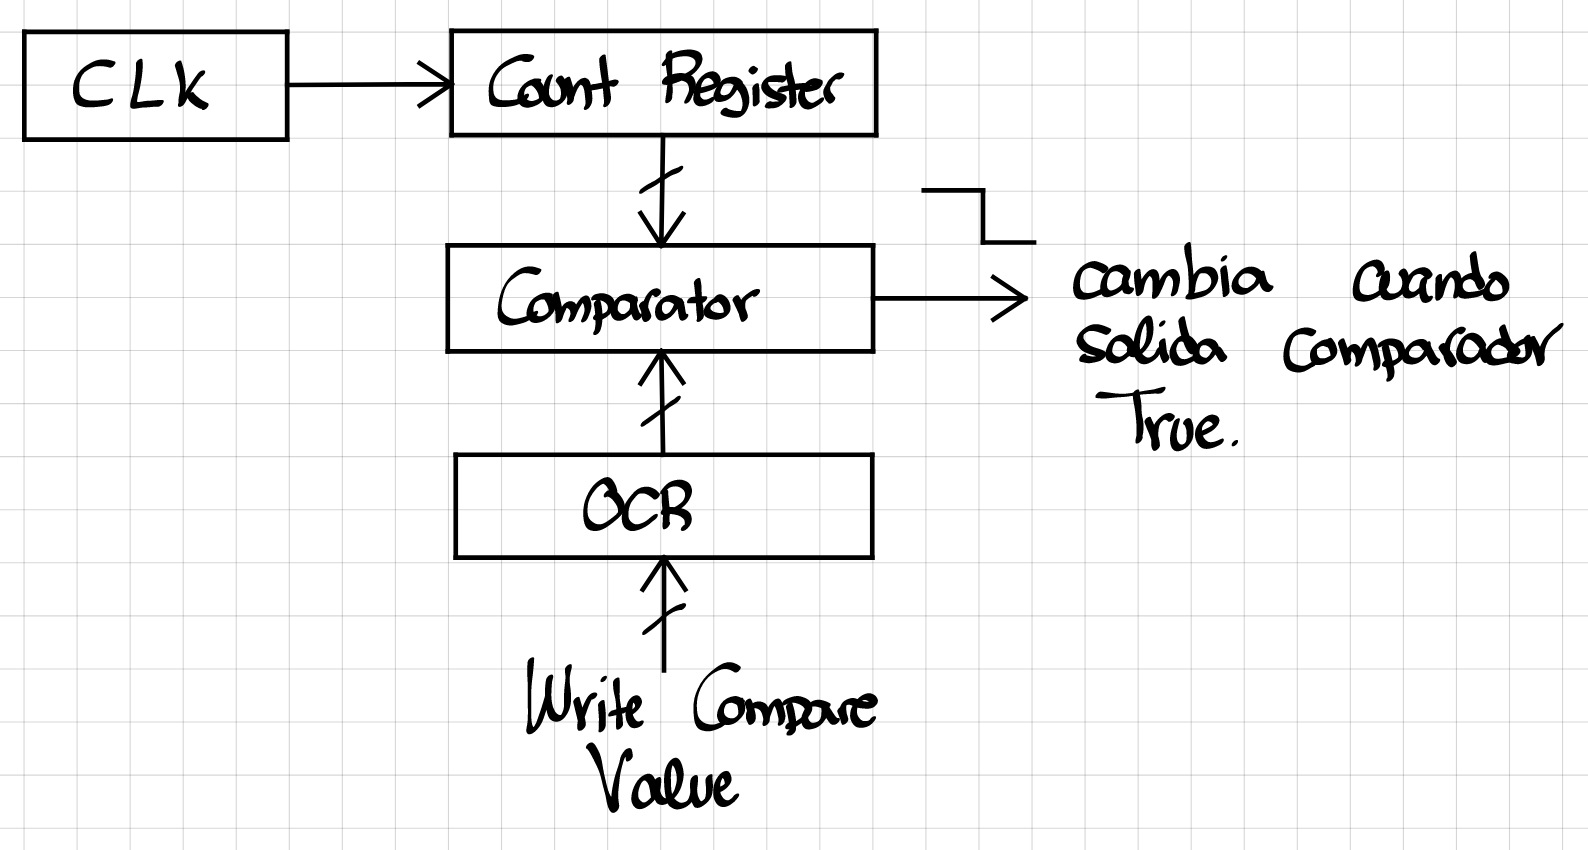 CLK
Count Register
Comparator
cambia cuando
salida comparador
True.
OCR
Write Compare
Value